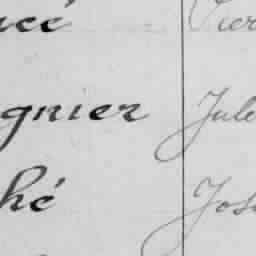 ncé Pier
gnier Jule
hé Jose